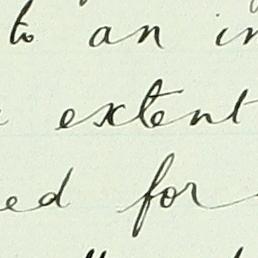 to an in
extent
ed for